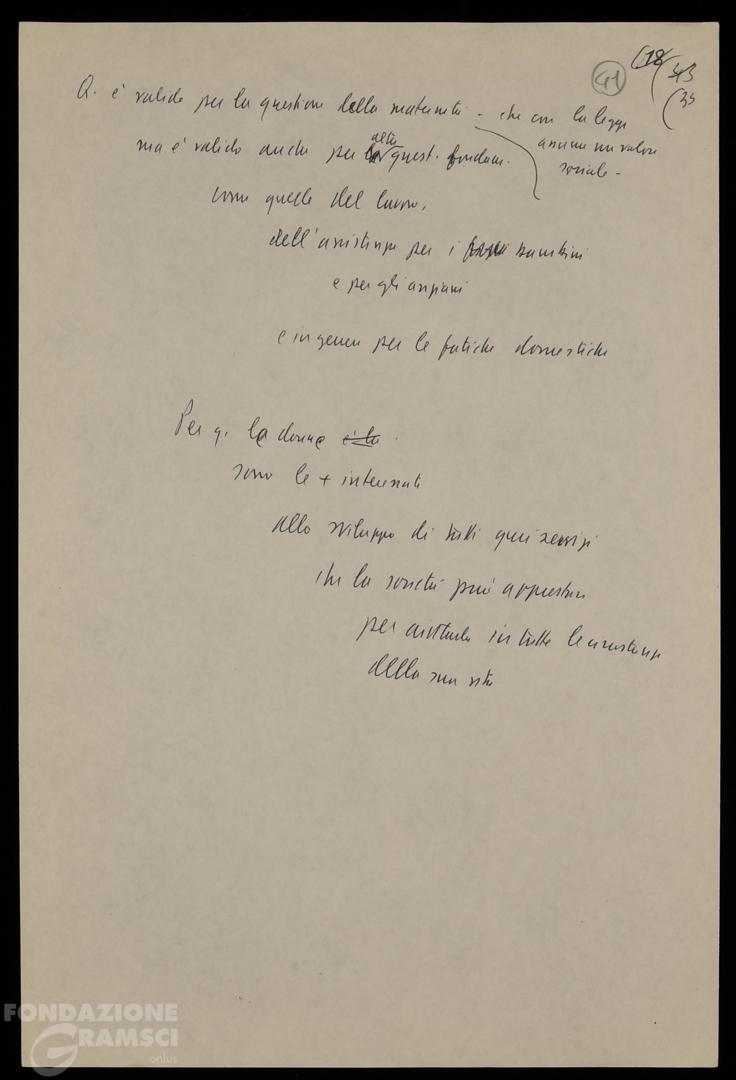 (18
(43
(35
41
Q. è valido per la questione della maternità - che con la legge
assume un valore
sociale -
ma è valido anche per altre quest. fondam.
come quelle del lavoro,
dell'assistenza per i bambini
e per gli anziani
e in genere per le fatiche domestiche
Per q. le donne è la
sono le + interessate
allo sviluppo di tutti quei servizi
che la società può apprestare
per aiutarla in tutte le circostanze
della sua vita
FONDAZIONE
GRAMSCI
onlus